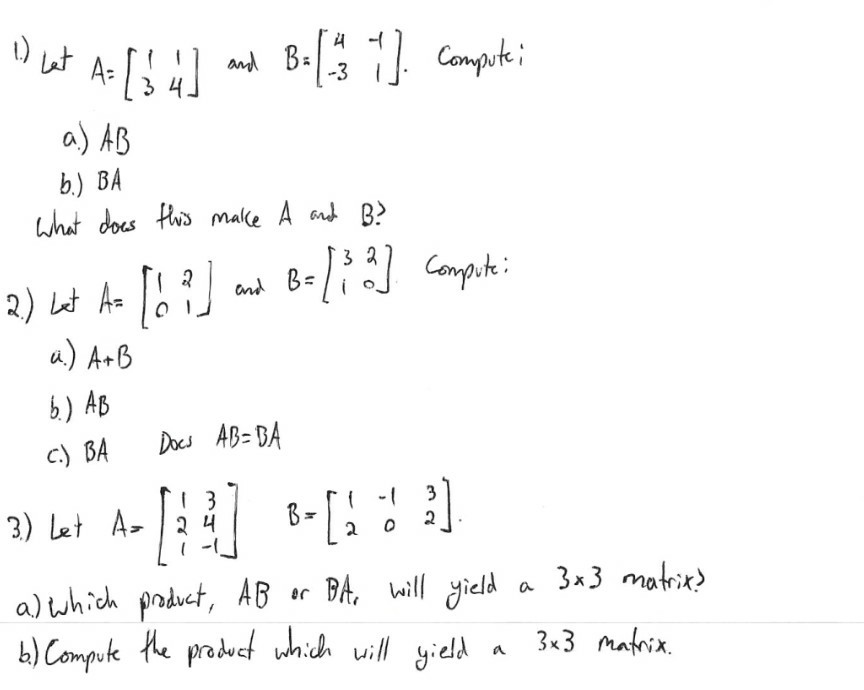 1.) Let A = [1 1; 3 4] and B = [4 -1; -3 1]. Compute:
a.) AB
b.) BA
What does this make A and B?
2.) Let A = [1 2; 0 1] and B = [3 2; 1 0]. Compute:
a.) A+B
b.) AB
c.) BA Does AB=BA
3.) Let A = [1 3; 2 4; 1 -1] B = [1 -1 3; 2 0 2].
a.) Which product, AB or BA, will yield a 3x3 matrix?
b.) Compute the product which will yield a 3x3 matrix.